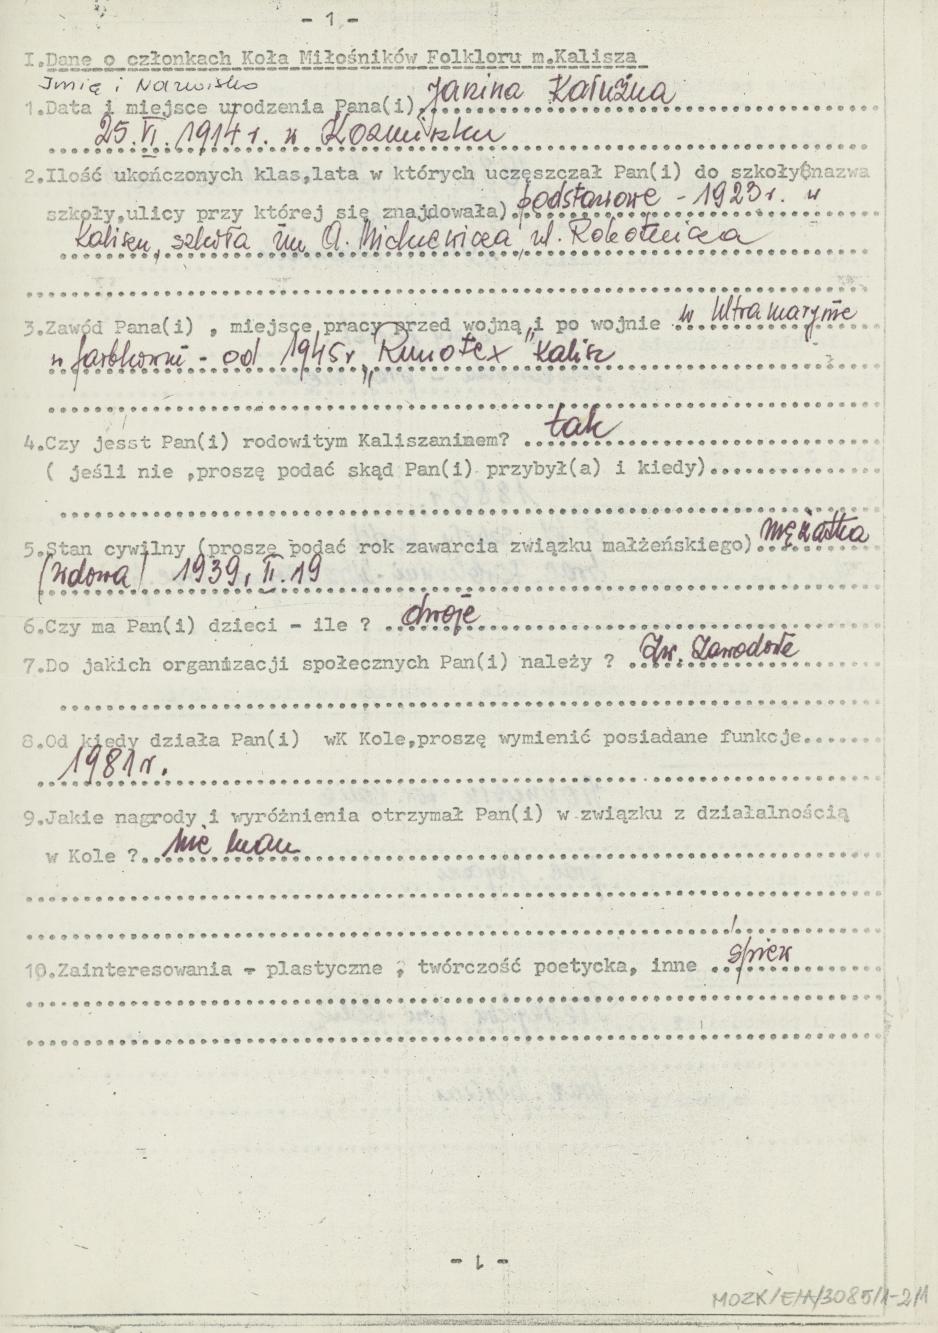 - 1 -
I.Dane o członkach Koła Miłośników Folkloru m.Kalisza
Imię i Nazwisko
1.Data i miejsce urodzenia Pana(i) Janina Kałużna
25.VI.1914 r. w Koźminku
2.Ilość ukończonych klas,lata w których uczęszczał Pan(i) do szkoły(nazwa
szkoły,ulicy przy której się znajdowała) podstawowe - 1923 r. w
Kaliszu, szkoła im A. Mickiewicza ul. Robotnicza
3.Zawód Pana(i) , miejsce pracy przed wojną i po wojnie w Ultramarynie
w farbkowni - od 1945 r „Runotex" Kalisz
4.Czy jesst Pan(i) rodowitym Kaliszaninem? tak
( jeśli nie ,proszę podać skąd Pan(i) przybył(a) i kiedy)
5.Stan cywilny (proszę podać rok zawarcia związku małżeńskiego) mężatka
(wdowa) 1939, II.19
6.Czy ma Pan(i) dzieci - ile ? dwoje
7.Do jakich organizacji społecznych Pan(i) należy ? Zw. Zawodowe
8.Od kiedy działa Pan(i) wK Kole,proszę wymienić posiadane funkcje
1981 r.
9.Jakie nagrody i wyróżnienia otrzymał Pan(i) w związku z działalnością
w Kole ? nie mam
10.Zainteresowania - plastyczne , twórczość poetycka, inne śpiew
- 1 -
MOZK/E/A/3085/1-2/1